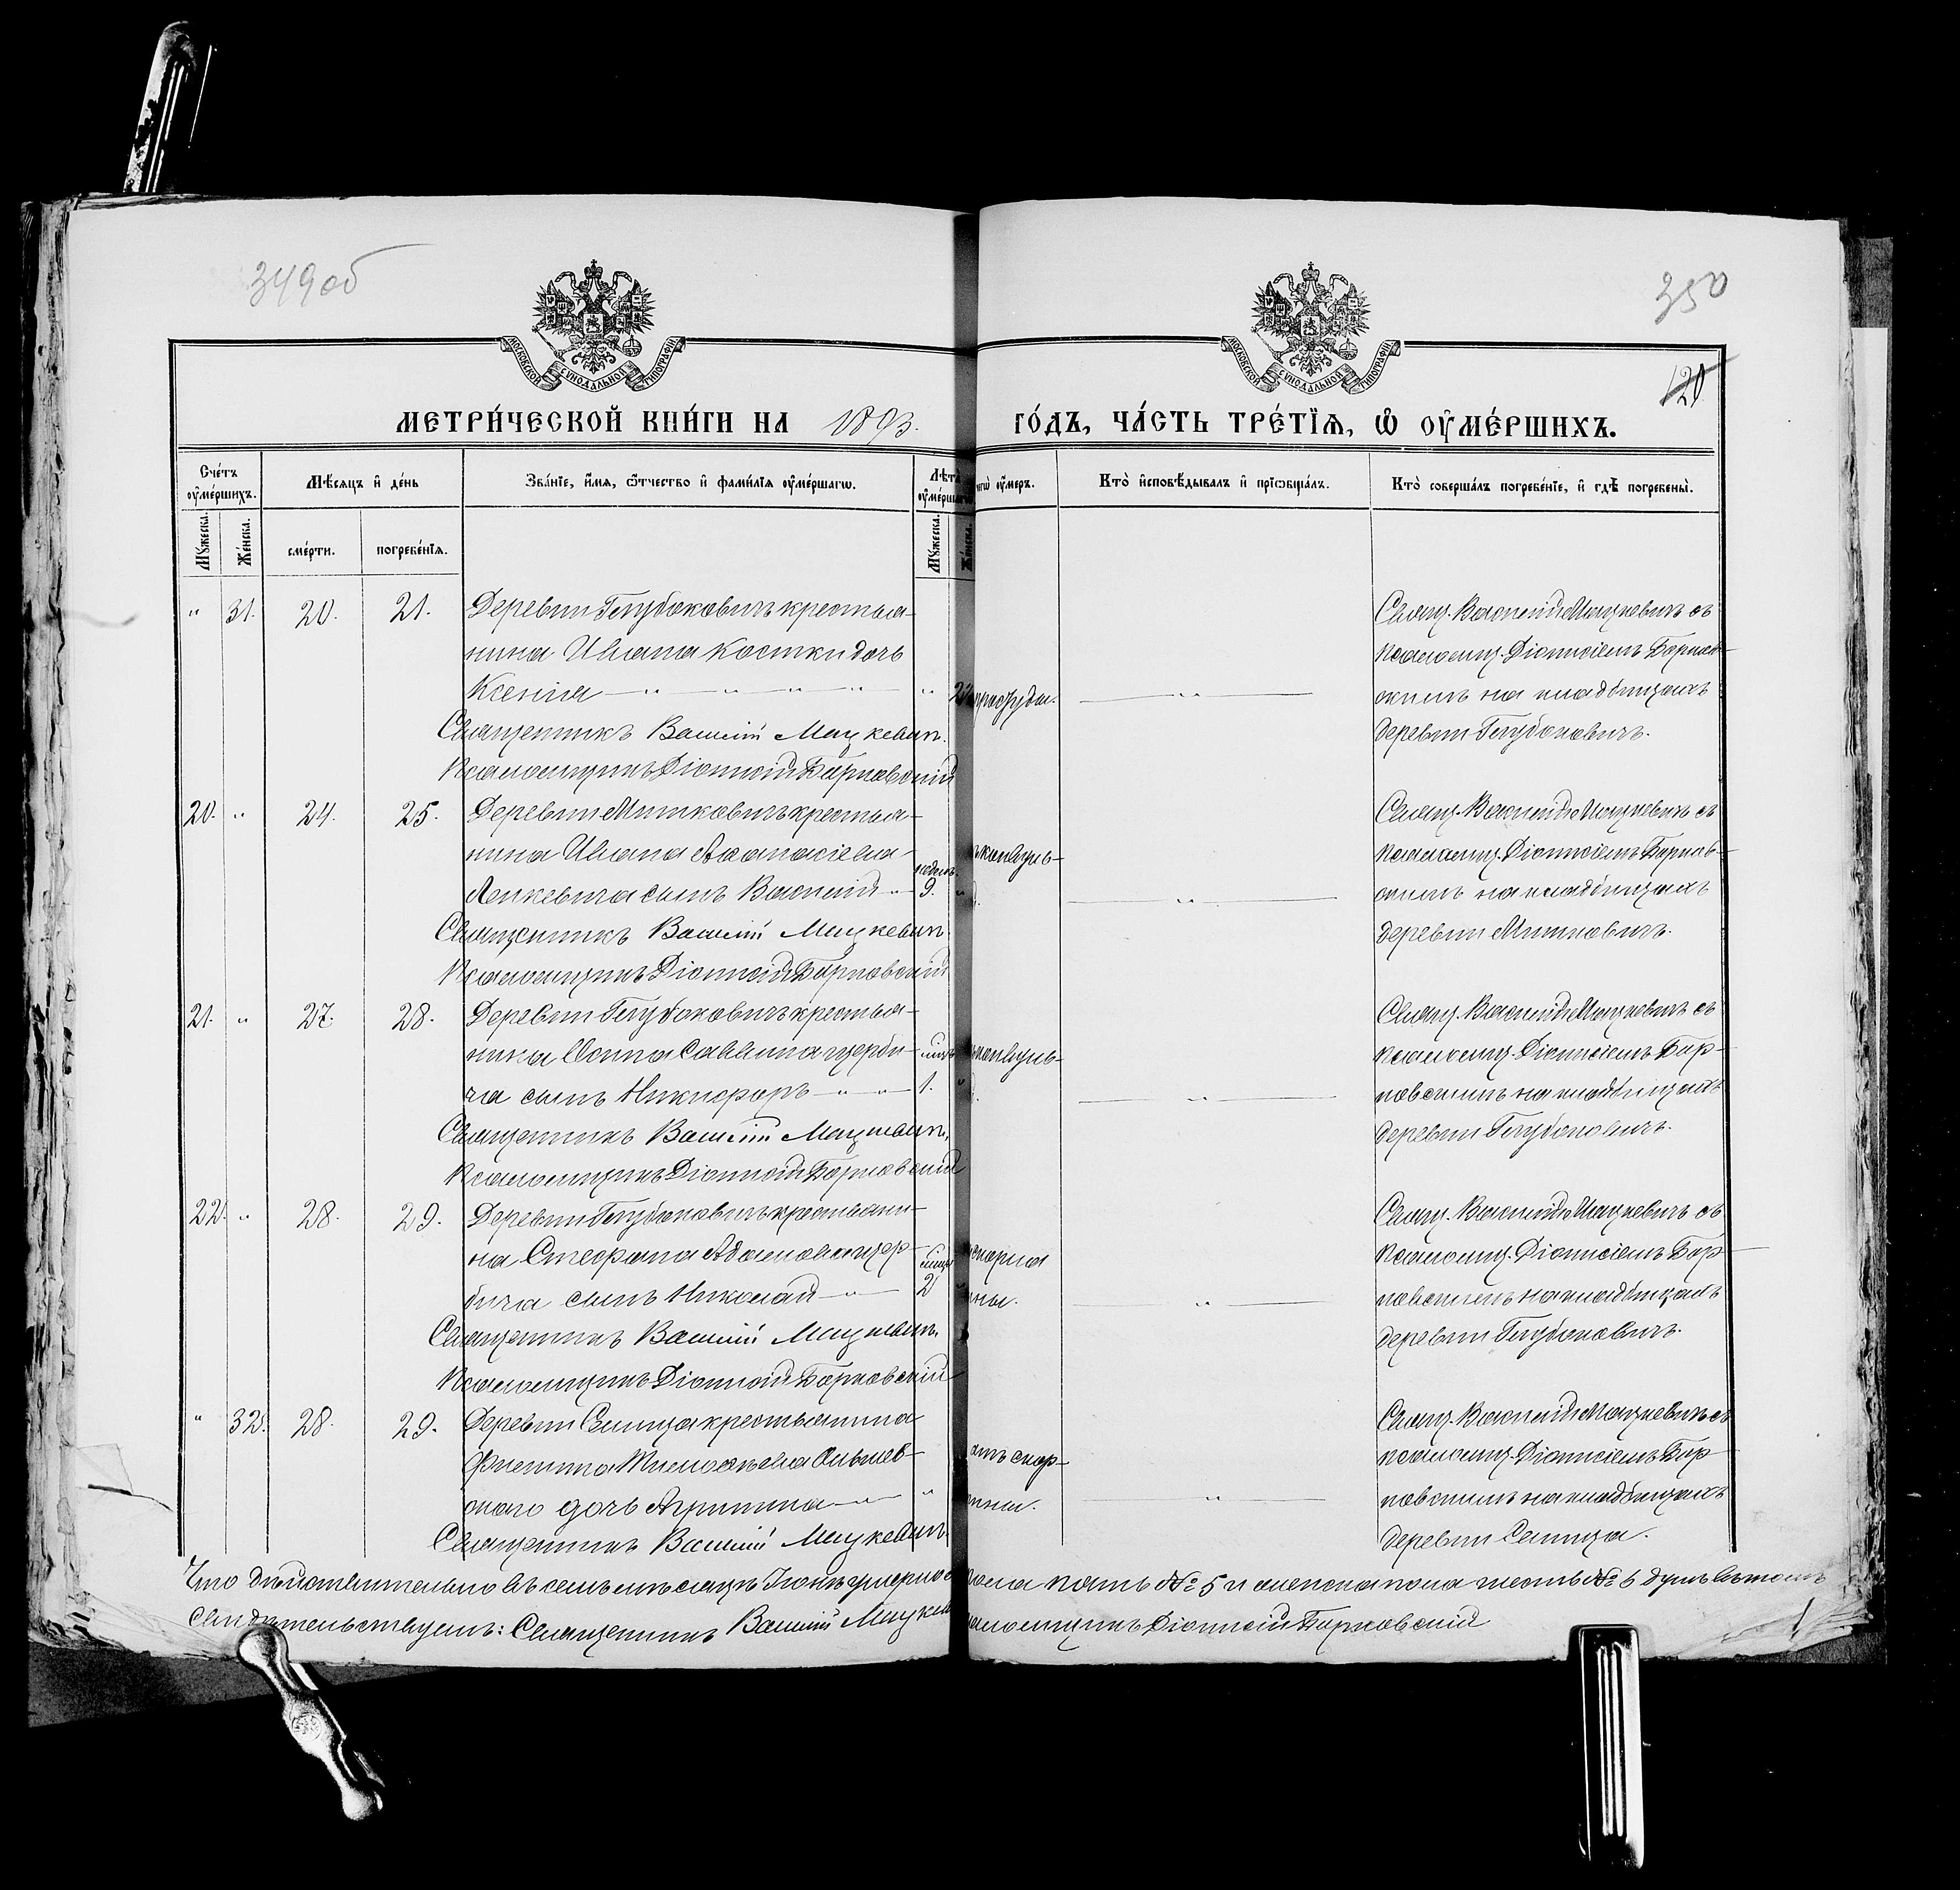 349об
350
120
МОСКОВСКОЙ СѴНОДАЛЬНОЙ ТИПОГРАФІИ
МОСКОВСКОЙ СѴНОДАЛЬНОЙ ТИПОГРАФІИ
МЕТРИ́ЧЕСКОЙ КНИ́ГИ НА 1893. ГО́ДЪ, ЧА́СТЬ ТРЕ́ТЇѦ, Ѡ҆ ОУ҆МЕ́РШИХЪ.
Сче́тъ оу҆ме́ршихъ.
Мѣ́сяцъ и҆ де́нь
Зва́нїе, и҆́мя, ѿчество и҆ фами́лїя оу҆ме́ршагѡ.
Лѣ́та оу҆ме́ршаг
чегѡ̀ оу҆́меръ.
Кто̀ и҆сповѣ́дывалъ и҆ прїѡбща́лъ.
Кто̀ соверша́лъ погребе́нїе, и҆ гдѣ̀ погребены̀.
Мꙋ́жеска.
Же́нска.
сме́рти.
погребе́нїя.
Мꙋ́жеска.
Же́нска.
" 31. 20. 21. Деревни Глубоковичъ крестья-
нина Ивана Костки дочь
Ксенія — " — " — " — " — "
Священникъ Василій Мацкевичъ.
Псаломщикъ Діонисій Барновскій
Свящ. Василій Мацкевичъ съ
псаломщ. Діонисіемъ Барнов-
скимъ на кладбищахъ
деревни Глубоковичъ.
20. " 24. 25. Деревни Мишковичъ крестья-
нина Ивана Аѳанасіева
Ленкевича сынъ Василій — " — 9. "
Священникъ Василій Мацкевичъ.
Псаломщикъ Діонисій Барновскій
Свящ. Василій Мацкевичъ съ
псаломщ. Діонисіемъ Барнов-
скимъ на кладбищахъ
деревни Мишковичъ.
21. " 27. 28. Деревни Глубоковичъ крестья-
нина Саввина Щерби-
ча сынъ Никифоръ — " — " — 1. "
Священникъ Василій Мацкевичъ.
Псаломщикъ Діонисій Барновскій
Свящ. Василій Мацкевичъ съ
псаломщ. Діонисіемъ Бар-
новскимъ на кладбищахъ
деревни Глубоковичъ.
22. " 28. 29. Деревни Глубоковичъ крестьяни-
на Стефана Адамова Щер-
бича сынъ Николай — " — 2 "
Священникъ Василій Мацкевичъ.
Псаломщикъ Діонисій Барновскій
Свящ. Василій Мацкевичъ съ
псаломщ. Діонисіемъ Бар-
новскимъ на кладбищахъ
деревни Глубоковичъ.
" 32. 28. 29. Деревни Селища крестьянина
Филиппа Тимоѳеева Ольшев-
скаго дочь Агрипина — " — "
Священникъ Василій Мацкевичъ.
Свящ. Василій Мацкевичъ съ
псаломщ. Діонисіемъ Бар-
новскимъ на кладбищахъ
деревни Селища.
Что дѣйствительно въ семъ мѣсяцѣ Іюнѣ умерло пола пять № 5 и женска пола шесть № 6 душъ въ томъ
свидѣтельствуемъ: Священникъ Василій Мацкев аломщикъ Діонисій Барновскій